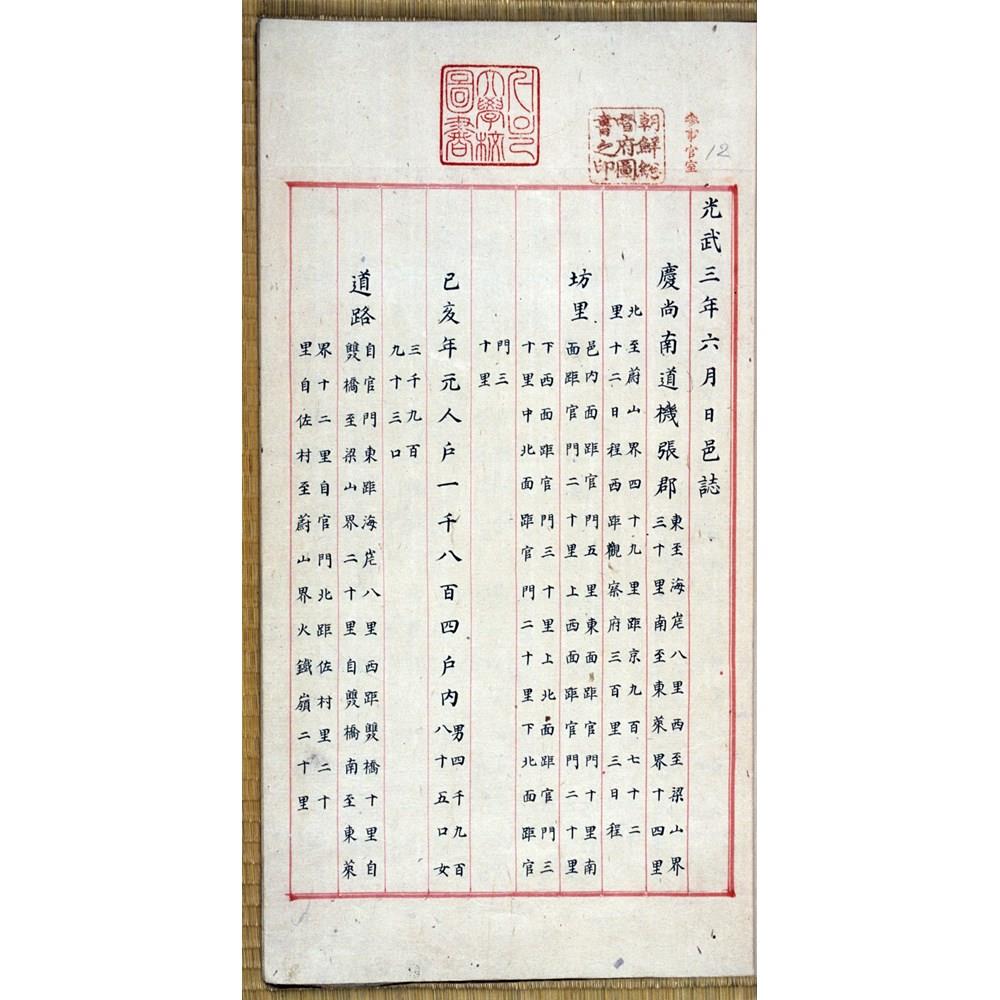 서울大學校圖書
朝鮮總督府圖書之印
參事官室
12
光武三年六月日邑誌
慶尚南道機張郡
東至海岸八里西至梁山界
三十里南至東萊界十四里
北至蔚山界四十九里距京九百七十二
里十二日程西距觀察府三百里三日程
坊里
邑内面距官門五里東面距官門十里南
面距官門二十里上西面距官門二十里
下西面距官門三十里上北面距官門三
十里中北面距官門二十里下北面距官
門三
十里
己亥年元人戶一千八百四戶内
男四千九百
八十五口女
三千九百
九十三口
道路
自官門東距海岸八里西距雙橋十里自
雙橋至梁山界二十里自雙橋南至東萊
界十二里自官門北距佐村里二十
里自佐村至蔚山界火鐵嶺二十里